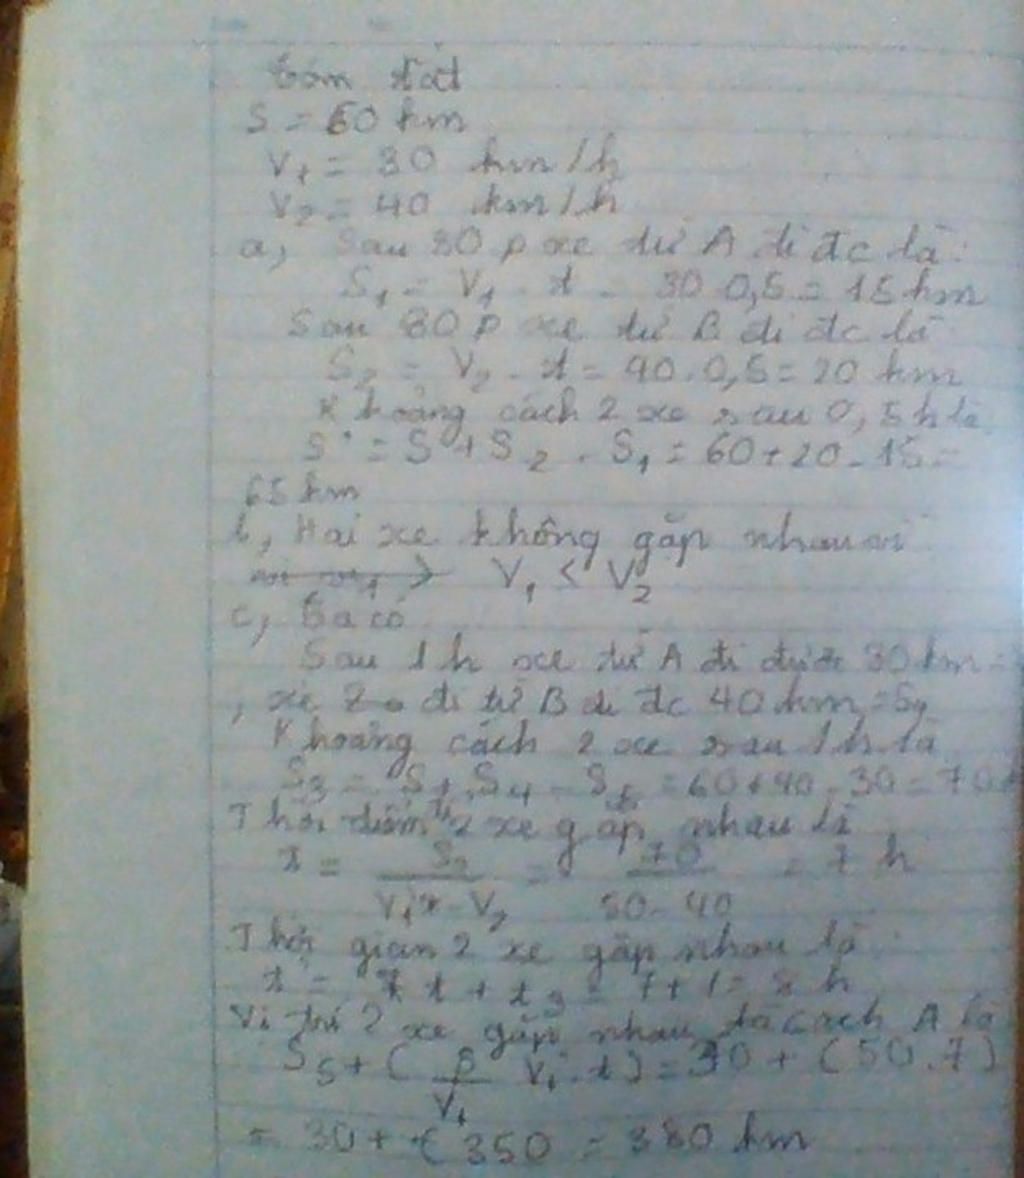 Tóm tắt
S = 60 km
V₁ = 30 km/h
V₂ = 40 km/h
a, Sau 30 p xe từ A đi đc là:
S₁ = V₁ . t = 30.0,5 = 15 km
Sau 30 p xe từ B đi đc là
S₂ = V₂ . t = 40.0,5 = 20 km
Khoảng cách 2 xe sau 0,5h là
S' = S + S₂ - S₁ = 60 + 20 - 15 =
65 km
b, Hai xe không gặp nhau vì
V₁ < V₂
c, Ta có
Sau 1h xe từ A đi được 30 km =
, xe 2 đi từ B đi đc 40 km = S₄
Khoảng cách 2 xe sau 1h là
S₃ = S + S₄ - S₅ = 60 + 40 - 30 = 70
Thời điểm 2 xe gặp nhau là
t = S₃ / V₁' - V₂ = 70 / 50 - 40 = 7 h
Thời gian 2 xe gặp nhau là :
t' = t + t₃ = 7 + 1 = 8 h
Vị trí 2 xe gặp nhau cách A là
S₅ + ( V₁' . t ) = 30 + ( 50 . 7 )
= 30 + 350 = 380 km